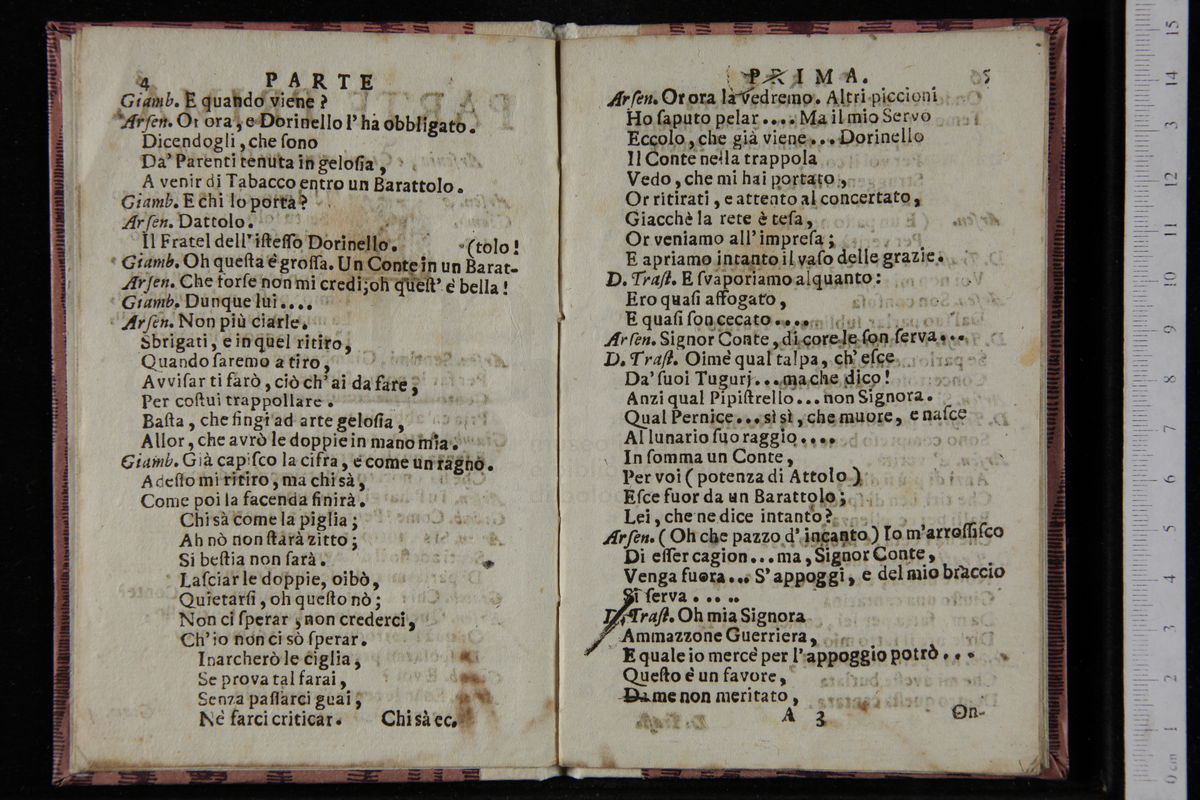 4 PARTE
Giamb. E quando viene ?
Arſen. Or ora, e Dorinello l' ha obbligato.
Dicendogli, che ſono
Da' Parenti tenuta in geloſia,
A venir di Tabacco entro un Barattolo.
Giamb. E chi lo porta ?
Arſen. Dattolo.
Il Fratel dell' iſteſſo Dorinello. (tolo !
Giamb. Oh queſta è groſſa. Un Conte in un Barat-
Arſen. Che forſe non mi credi; oh queſt' è bella !
Giamb. Dunque lui....
Arſen. Non più ciarle.
Sbrigati, e in quel ritiro,
Quando ſaremo a tiro,
Avviſar ti farò, ciò ch' ai da fare,
Per coſtui trappollare.
Baſta, che fingi ad arte geloſia,
Allor, che avrò le doppie in mano mia.
Giamb. Già capiſco la cifra, e come un ragno.
Adeſto mi ritiro, ma chi sà,
Come poi la facenda finirà.
Chi sà come la piglia;
Ah nò non ſtarà zitto;
Si beſtia non ſarà.
Laſciar le doppie, oibò,
Quietarſi, oh queſto nò;
Non ci ſperar, non crederci,
Ch' io non ci sò ſperar.
Inarcherò le ciglia,
Se prova tal farai,
Senza paſſarci guai,
Nè farci criticar. Chi sà ec.
PRIMA. 5
Arſen. Or ora là vedremo. Altri piccioni
Ho ſaputo pelar.... Ma il mio Servo
Eccolo, che già viene... Dorinello
Il Conte nella trappola
Vedo, che mi hai portato,
Or ritirati, e attento al concertato,
Giacchè la rete è teſa,
Or veniamo all' impreſa;
E apriamo intanto il vaſo delle grazie.
D. Traſt. E ſvaporiamo alquanto:
Ero quaſi affogato,
E quaſi ſon cecato....
Arſen. Signor Conte, di core le ſon ſerva...
D. Traſt. Oimè qual talpa, ch' eſce
Da' ſuoi Tugurj... ma che dico !
Anzi qual Pipiſtrello... non Signora.
Qual Pernice... sì sì, che muore, e naſce
Al lunario ſuo raggio....
In ſomma un Conte,
Per voi ( potenza di Attolo )
Eſce fuor da un Barattolo;
Lei, che ne dice intanto?
Arſen. ( Oh che pazzo d' incanto ) Io m'arroſſiſco
Di eſſer cagion... ma, Signor Conte,
Venga fuora... S' appoggi, e del mio braccio
Si ſerva.....
D. Traſt. Oh mia Signora
Ammazzone Guerriera,
E quale io mercè per l' appoggio potrò...
Queſto è un favore,
Da me non meritato,
A 3 On-